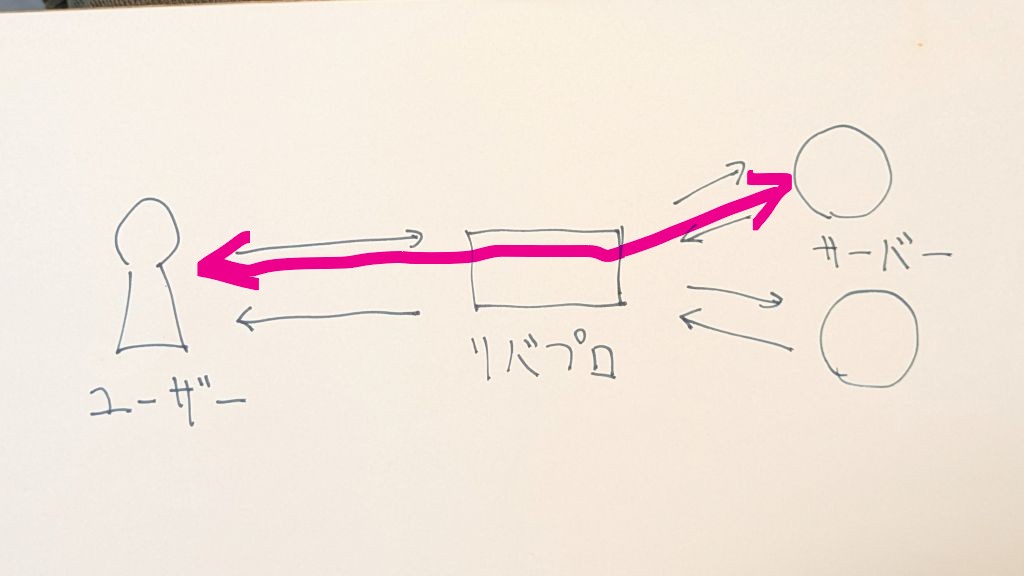 ユーザー
リバプロ
サーバー